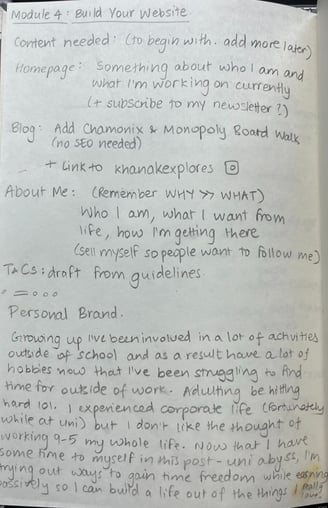 Module 4: Build Your Website
Content needed: (to begin with. add more later)
Homepage: Something about who I am and
what I'm working on currently
(+ subscribe to my newsletter?)
Blog: Add Chamonix & Monopoly Board Walk
(no SEO needed)
+ Link to khanakexplores
About Me: (Remember WHY >> WHAT)
Who I am, what I want from
life, how I'm getting there
(sell myself so people want to follow me)
T&Cs: draft from guidelines.
Personal Brand.
Growing up I've been involved in a lot of activities
outside of school and as a result have a lot of
hobbies now that I've been struggling to find
time for outside of work. Adulting be hitting
hard lol. I experienced corporate life (fortunately
while at uni) but I don't like the thought of
working 9-5 my whole life. Now that I have
some time to myself in this post-uni abyss, I'm
trying out ways to gain time freedom while earning
passively so I can build a life out of the things I really
love.